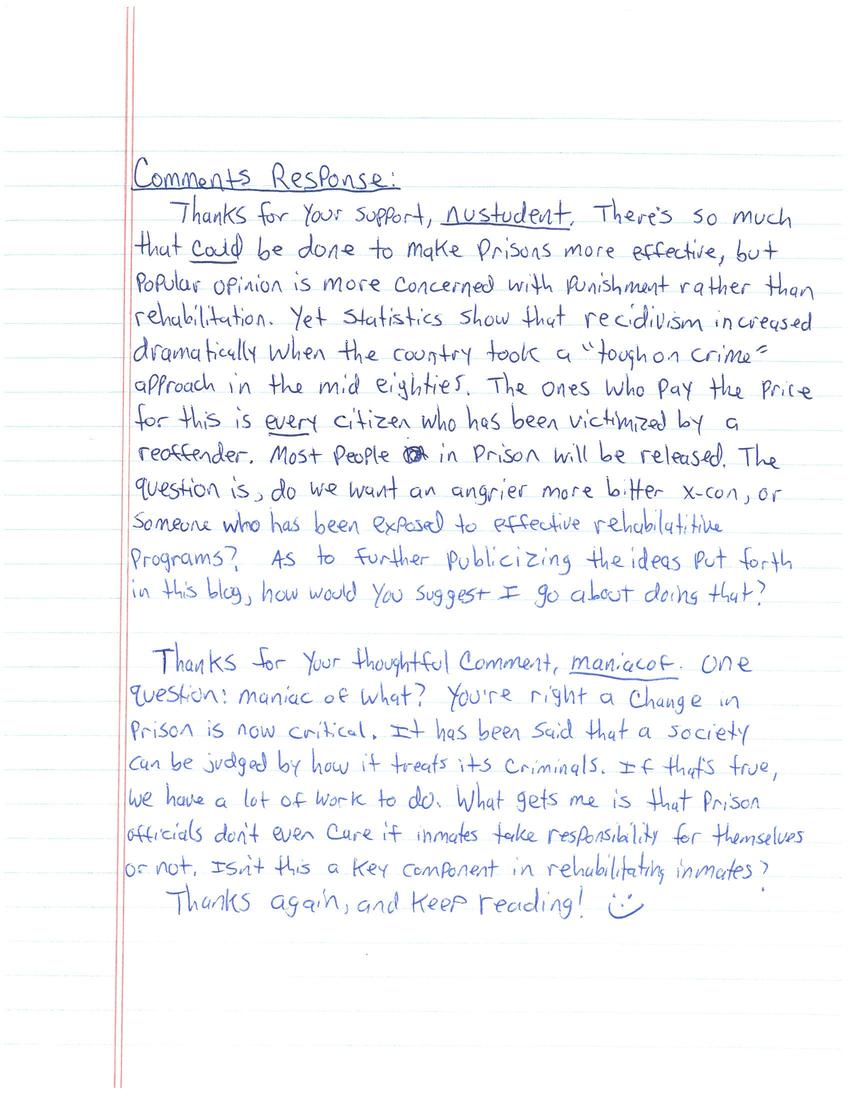 Comments Response:
Thanks for your support, nustudent. There's so much
that could be done to make prisons more effective, but
popular opinion is more concerned with punishment rather than
rehabilitation. Yet statistics show that recidivism increased
dramatically when the country took a "tough on crime"
approach in the mid eighties. The ones who pay the price
for this is every citizen who has been victimized by a
reoffender. Most people in prison will be released. The
question is, do we want an angrier more bitter x-con, or
someone who has been exposed to effective rehabilatitive
programs? As to further publicizing the ideas put forth
in this blog, how would you suggest I go about doing that?
Thanks for your thoughtful comment, maniacof. One
question: maniac of what? You're right a change in
prison is now critical. It has been said that a society
can be judged by how it treats its criminals. If that's true,
we have a lot of work to do. What gets me is that prison
officials don't even care if inmates take responsibility for themselves
or not. Isn't this a key component in rehabilitating inmates?
Thanks again, and keep reading!